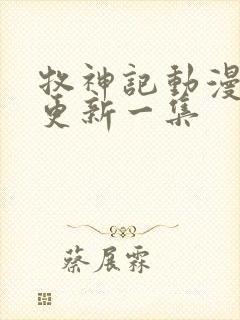 牧神記動漫
更新一集
蔡展霖